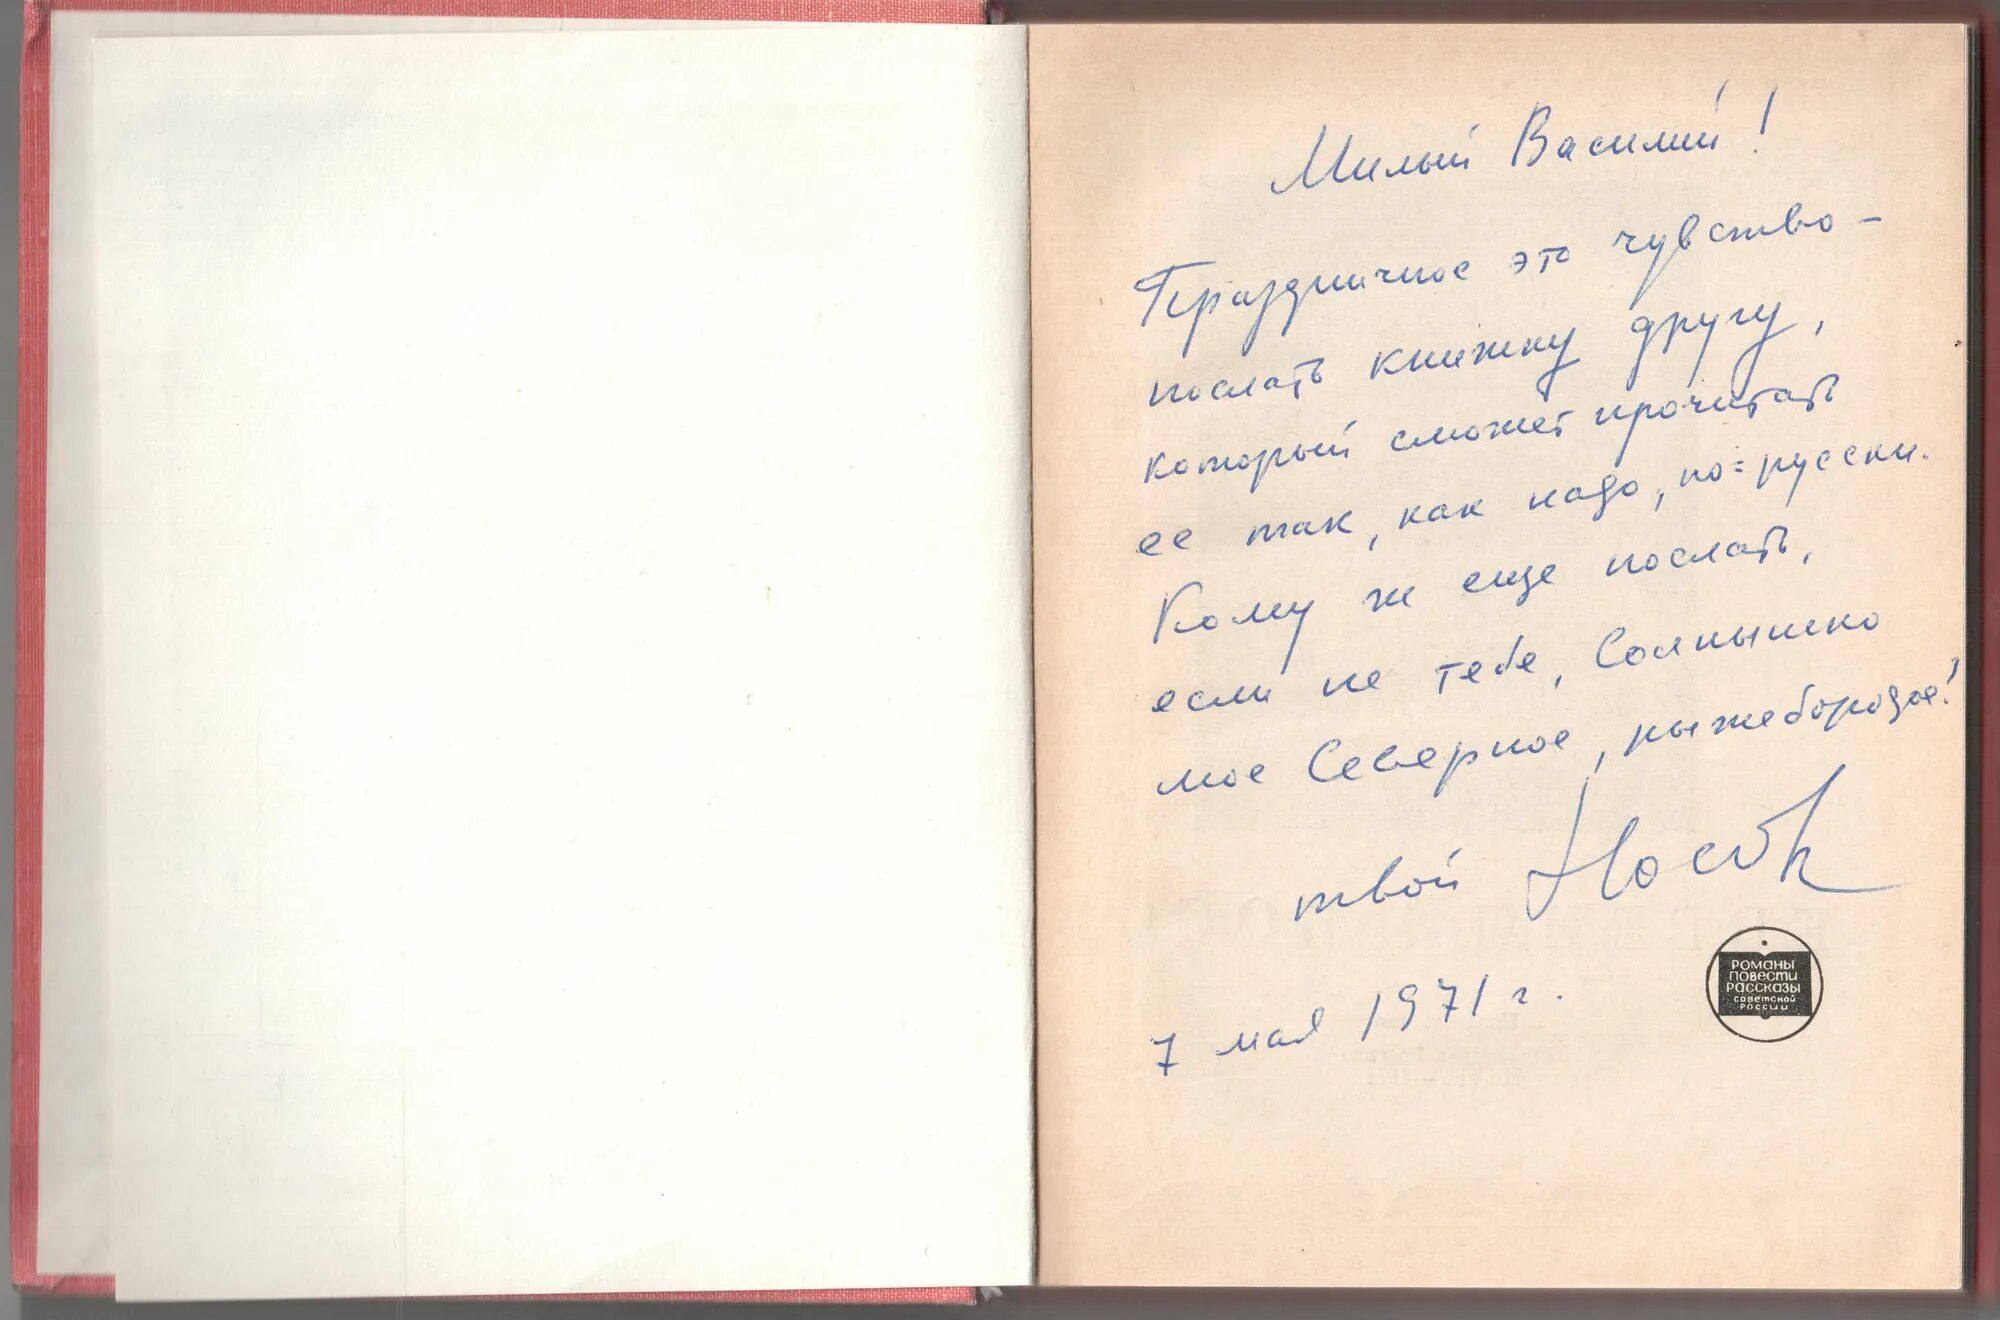 Милый Василий!
Праздничное это чувство –
послать книжку другу,
который сможет прочитать
ее так, как надо, по=русски.
Кому ж еще послать,
если не тебе, Солнышко
мое Северное, рыжебородое!
твой Носов
7 мая 1971 г.
РОМАНЫ
ПОВЕСТИ
РАССКАЗЫ
СОВЕТСКОЙ
РОССИИ